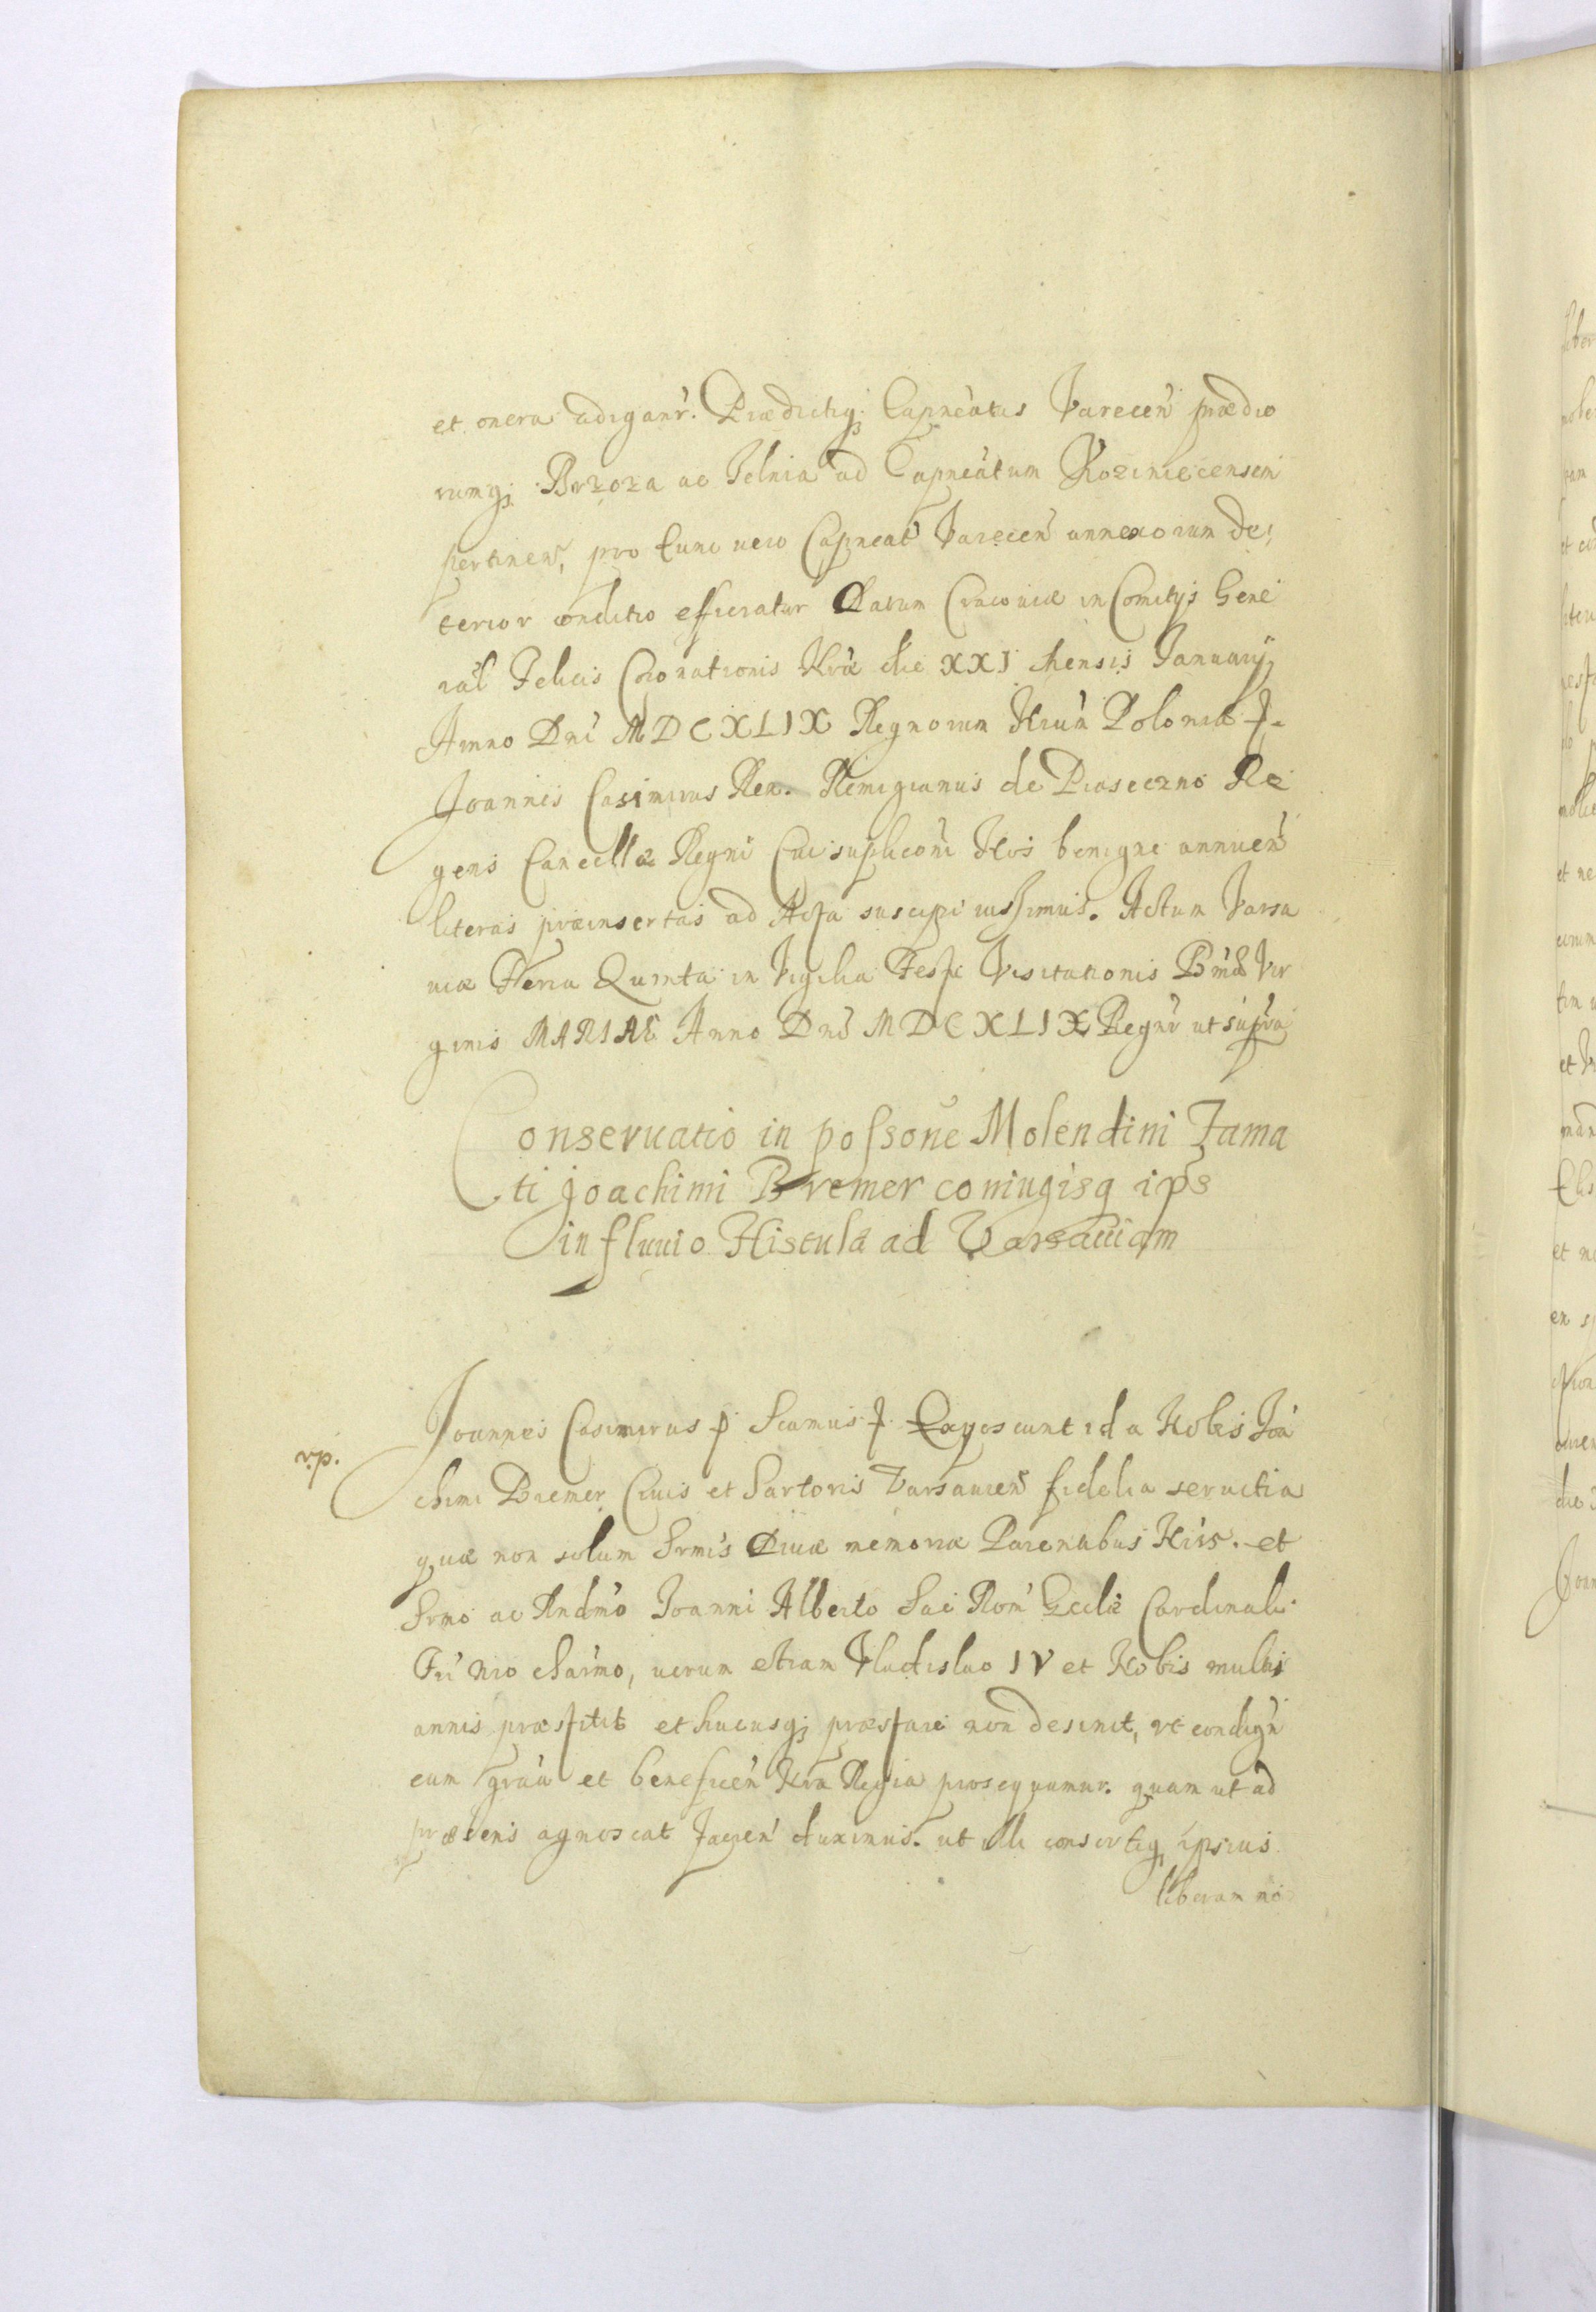 et onera adiganr̃. Prædictiq; Capneatus Varecen̄ prædio
rumq; Brzoza ac Jelnia ad Capneatum Kozinicensem
pertinen̄, pro tunc uero Capneat̃ Varecen̄ annexorum de,
terior conditio efficiatur Datum Cracouiæ in Comitÿs Gene
ral̃ Felicis Coronationis Nr̃æ die XXI Mensis Januarÿ
Anno Dni MDCXLIX Regnorum Nrũm Poloniæ &
Joannes Casimirus Rex. Remigianus de Piaseczno Re
gens Cancellæ Regni Cui supliconi Nos benigne annuen̄
literas præinsertas ad Acta suscipi iussimus. Actum Varsa
uiæ Feria Quinta in Vigilia Festi Visitationis Bmæ Vir
ginis MARIAE Anno Dni MDCXLIX Regnr̃ ut supra
Conseruatio in possone Molendini Fama
ti Joachimi Bremer coniugisq ips
in fluuio Histula ad Varsauiam
vp.
Joannes Casimirus p Scimus &. Exposcunt id a Nobis Joa
chimi Bremer Ciuis et Sartoris Varsauien̄ fidelia seruitia
quæ non solum Srmis Diuæ memoriæ Parentibus Nris. et
Srmo ac Rndmo Joanni Alberto Sac Rom̃ Eccliæ Cardinali
Fri Nro charmo, uerum etiam Vladislao IV et Nobis multis
annis præstitit et hucusq; præstare non desinit, vt condign̄
eum gra͂a et beneficen̄ Nra Regia prosequamur. quam ut ad
præsens agnoscat facien̄ duximus. ut illi consortiq; ipsius
liberam no